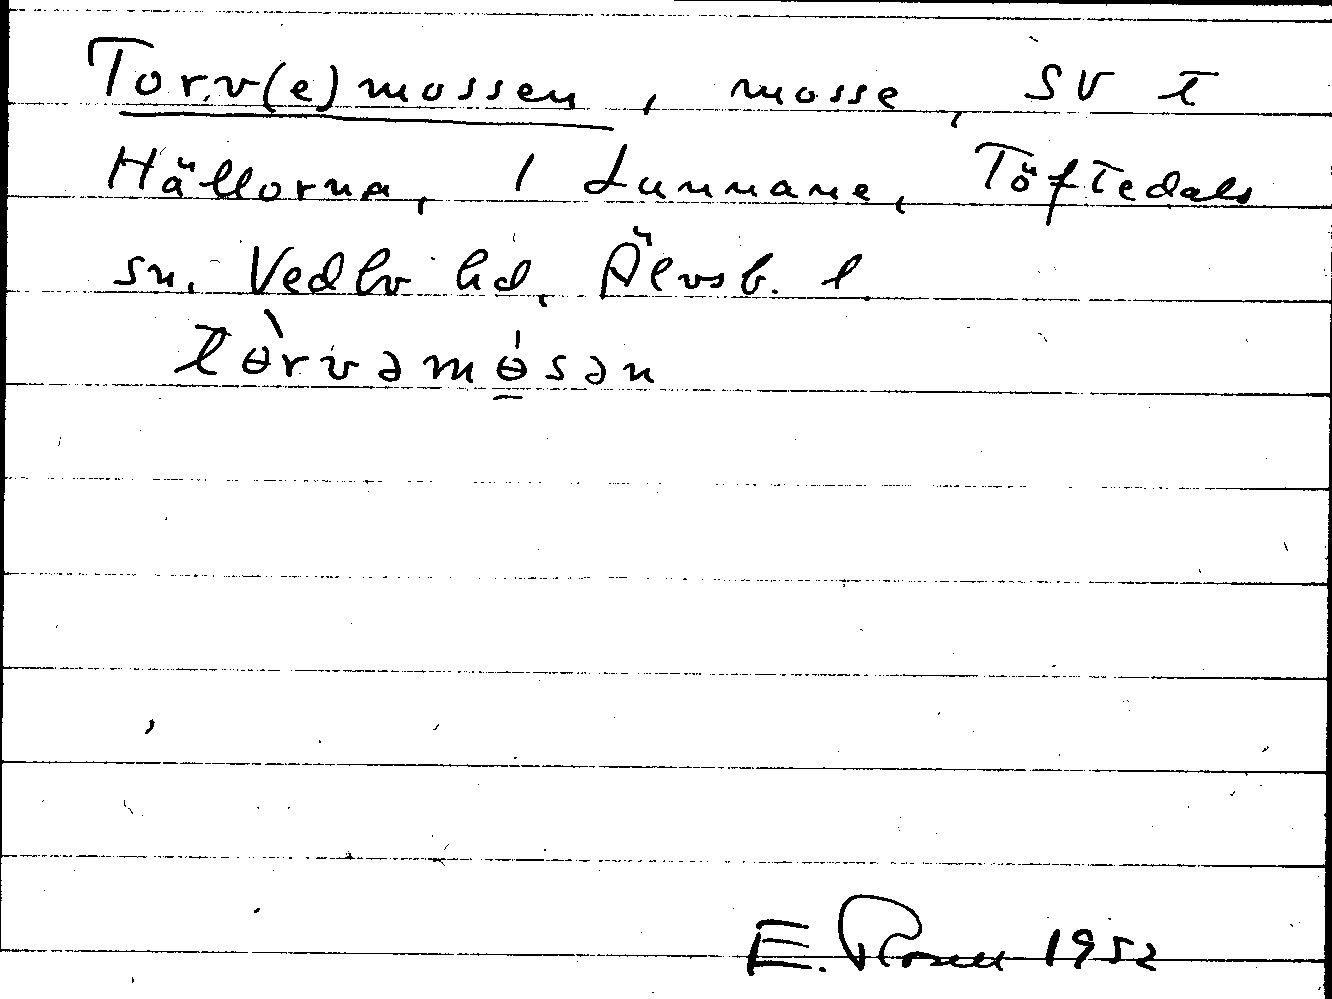 Torv(e)mossen, mosse, SV t
Hällorna, 1 Lunnane, Töftedals
sn. Vedbo hd, Älvsb. l.
tɵ̀rvəmɵ̱́sən
E. Rosell 1952